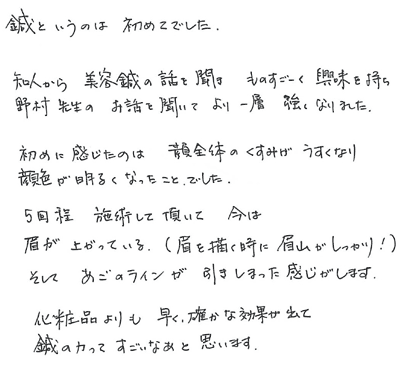 鍼というのは 初めてでした.
知人から 美容鍼の話を聞き ものすごーく 興味を持ち
野村先生の お話を聞いて より一層 強くなりました.
初めに感じたのは 顔全体の くすみが うすくなり
顔色が明るくなったこと.でした.
5回程 施術して頂いて 今は
眉が 上がっている.(眉を描く時に 眉山がしっかり!)
そして あごのラインが 引きしまった感じがします.
化粧品よりも 早く.確かな効果が出て
鍼の力って すごいなぁと 思います.